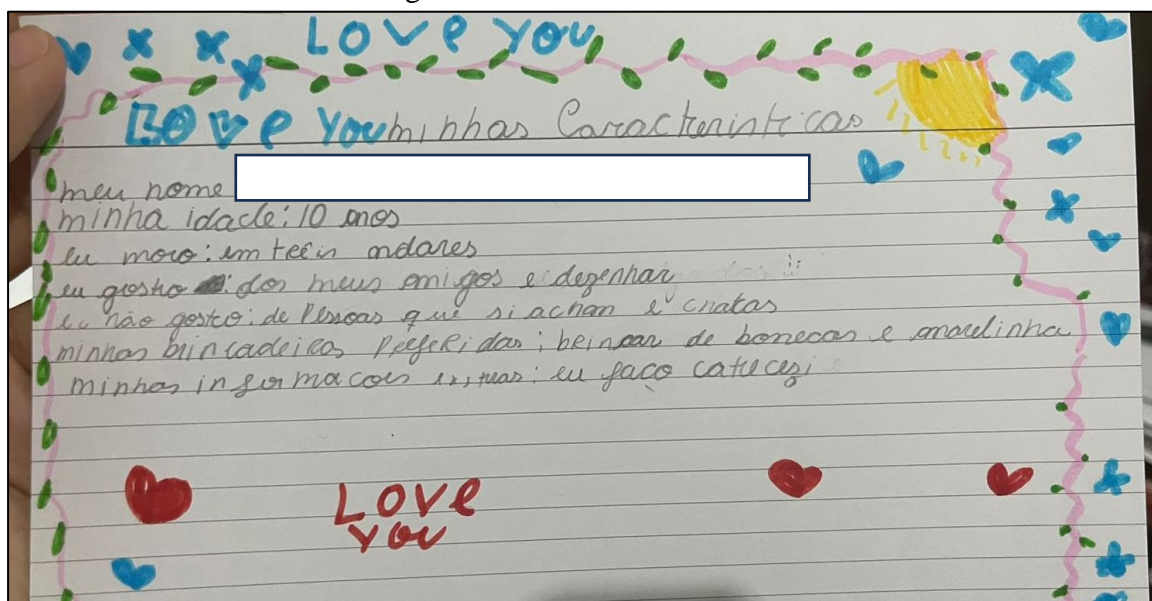 LOVE YOU
LOVE YOU minhas Caracterinticas
meu nome
minha idade: 10 anos
eu moro: em treis andares
eu gosto: dos meus amigos e dezenhar
eu não gosto: de Pessoas que si achan e chatas
minhas brincadeiras Preferidas: beincar de bonecas e amarelinha
minhas informacois : eu faço catecezi
LOVE
YOU